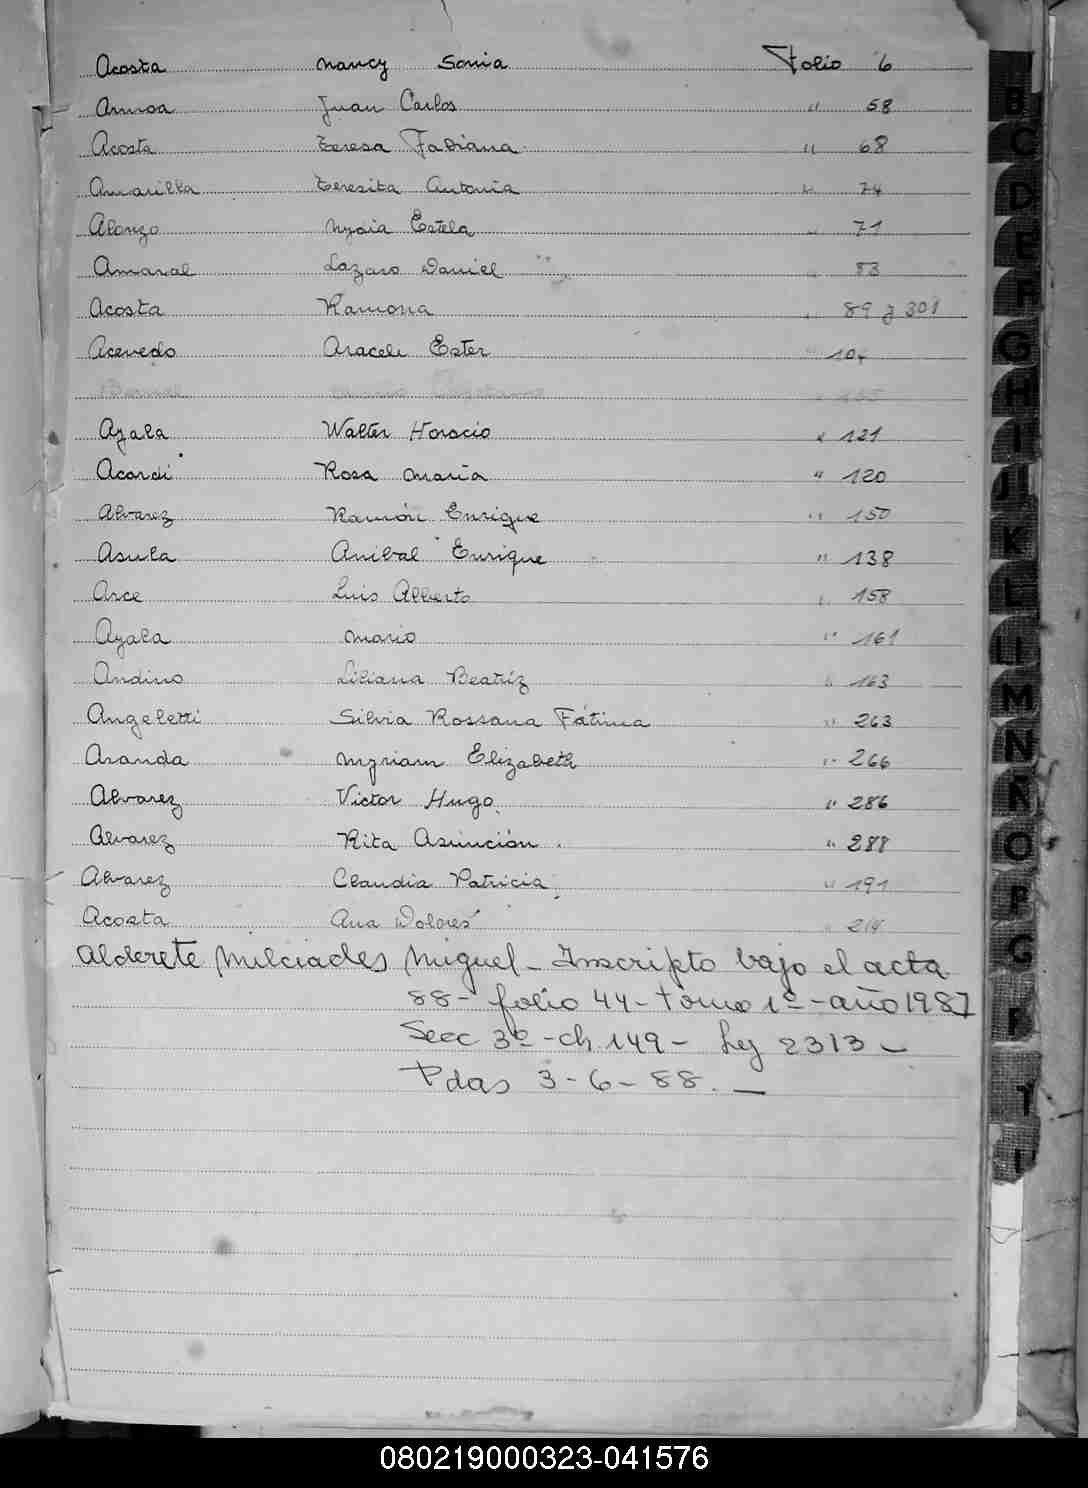 Acosta Nancy Sonia Folio 6
Armoa Juan Carlos " 58
Acosta Teresa Fabiana " 68
Amarilla Teresita Antonia " 74
Alonzo Nydia Estela " 71
Amaral Lazaro Daniel " 83
Acosta Ramona " 89 y 301
Acevedo Araceli Ester " 104
Ayala Walter Horacio " 121
Acardi Rosa María " 120
Alvarez Ramón Enrique " 150
Asula Anibal Enrique " 138
Arce Luis Alberto " 158
Ayala Mario " 161
Andino Liliana Beatríz " 163
Angeletti Silvia Rossana Fátima " 263
Aranda Myriam Elizabeth " 266
Alvarez Victor Hugo " 286
Alvarez Rita Asunción . " 288
Alvarez Claudia Patricia " 191
Acosta Ana Dolores " 214
Alderete Milciades Miguel - Inscripto bajo el acta
88 - folio 44 - tomo 1º - año 1987
Secc 3º - ch 149 - Ley 2313 -
Pdas 3-6-88. -
B
C
D
E
F
G
H
I
J
K
L
M
N
Ñ
O
P
T
080219000323-041576